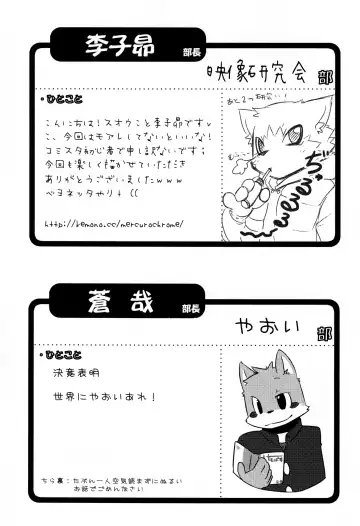 李子昴 部長
映像研究会 部
・ひとこと
あと2つ研究い!
こんにちは!スオウこと李子昴ですv
こ、今回はモアレしてないといいな!
コミスタ初心者で申し訳ないです;
今回も楽しく描かせていただき
ありがとうございましたwww
ベヨネッタやりt ((
http://kemono.cc/mercurochrome/
蒼哉 部長
やおい 部
・ひとこと
決意表明
世界にやおいあれ!
ちら裏:たぶん一人空気読まずにぬるい
お話でごめんなさい